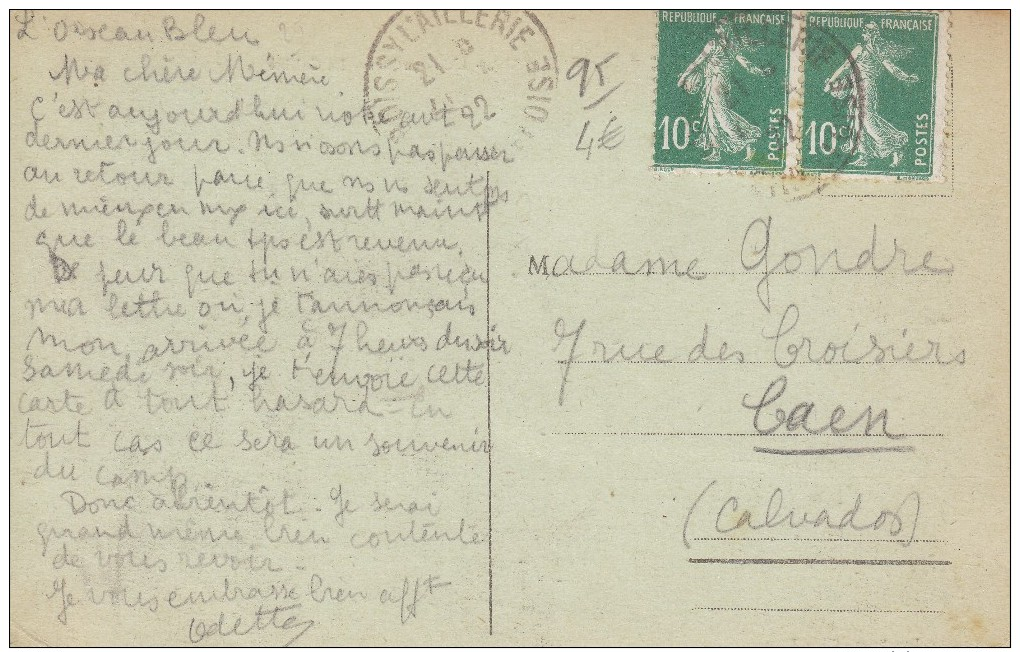 L'Oiseau Bleu
Ma chère Mémère
C'est aujourd'hui notre av
dernier jour. Ns n'osons pas penser
au retour parce que ns ns sentons
de mieux en mx ici, surtt maint
que le beau tps est revenu.
De peur que tu n'aies pas reçu
ma lettre où je t'annonçais
mon arrivée à 7 heures du soir
Samedi soir, je t'envoie cette
carte à tout hasard - En
tout cas ce sera un souvenir
du camp.
Donc à bientôt. Je serai
quand même bien contente
de vous revoir -
Je vous embrasse bien afft
Odette
BOISSY L'AILLERIE
OISE
21
22
95
4€
REPUBLIQUE FRANÇAISE
10c
POSTES
REPUBLIQUE FRANÇAISE
10c
POSTES
Madame Gondre
7 rue des Croisiers
Caen
(Calvados)